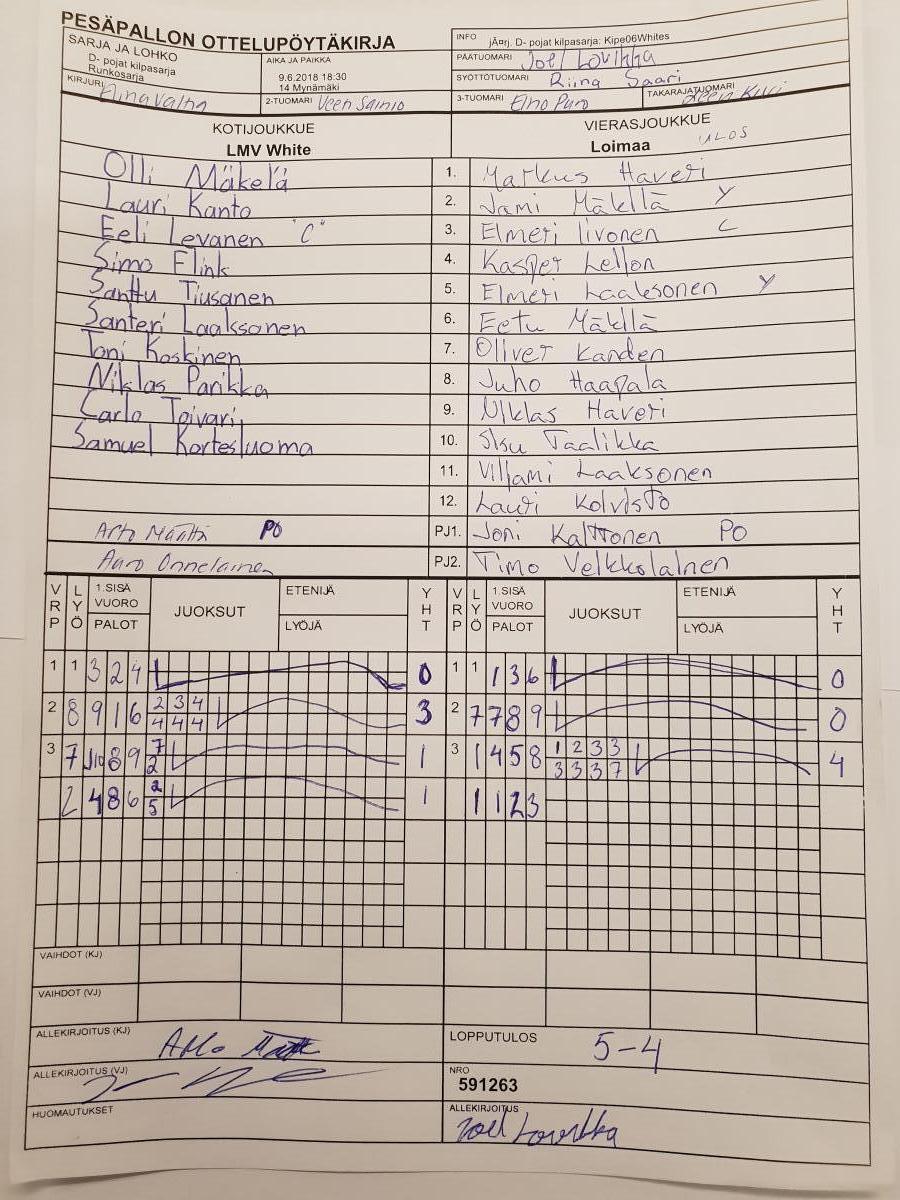 PESÄPALLON OTTELUPÖYTÄKIRJA
SARJA JA LOHKO
D- pojat kilpasarja
Runkosarja
AIKA JA PAIKKA
9.6.2018 18:30
14 Mynämäki
INFO jÃ¤rj. D- pojat kilpasarja: Kipe06Whites
PÄÄTUOMARI Joel Lovikka
SYÖTTÖTUOMARI Riina Saari
KIRJURI Aina Valta
2-TUOMARI Veen Sainio
3-TUOMARI Eino Puro
TAKARAJATUOMARI
KOTIJOUKKUE
LMV White
VIERASJOUKKUE
Loimaa ULOS
Olli Mäkelä 1. Markus Haveri
Lauri Kanto 2. Jami Mäkilä Y
Eeli Levanen "C" 3. Elmeri Iivonen C
Simo Flink 4. Kasper
Santtu Tiusanen 5. Elmeri Laaksonen Y
Santeri Laaksonen 6. Eetu Mäkilä
Toni Koskinen 7. Oliver Kanden
Niklas Parikka 8. Juho Haapala
Carlo Toivari 9. Niklas Haveri
Samuel Kortesluoma 10. Sisu Taalikka
11. Viljami Laaksonen
12. Lauri Koivisto
Arto Määttä PO PJ1. Joni Kalttonen PO
Aaro Onnelainen PJ2. Timo Veikkolainen
VRP LYÖ 1.SISÄ VUORO PALOT JUOKSUT ETENIJÄ LYÖJÄ YHT VRP LYÖ 1.SISÄ VUORO PALOT JUOKSUT ETENIJÄ LYÖJÄ YHT
1 1 3 2 4 0 1 1 1 3 6 0
2 8 9 1 6 2 3 4 3 2 7 7 8 9 0
4 4 4
3 7 10 8 9 7 1 3 1 4 5 8 1 2 3 3 4
2 3 3 3 7
2 4 8 6 2 1 1 1 2 3
5
VAIHDOT (KJ)
VAIHDOT (VJ)
ALLEKIRJOITUS (KJ)
LOPPUTULOS 5-4
ALLEKIRJOITUS (VJ)
NRO
591263
HUOMAUTUKSET
ALLEKIRJOITUS Joel Lovikka